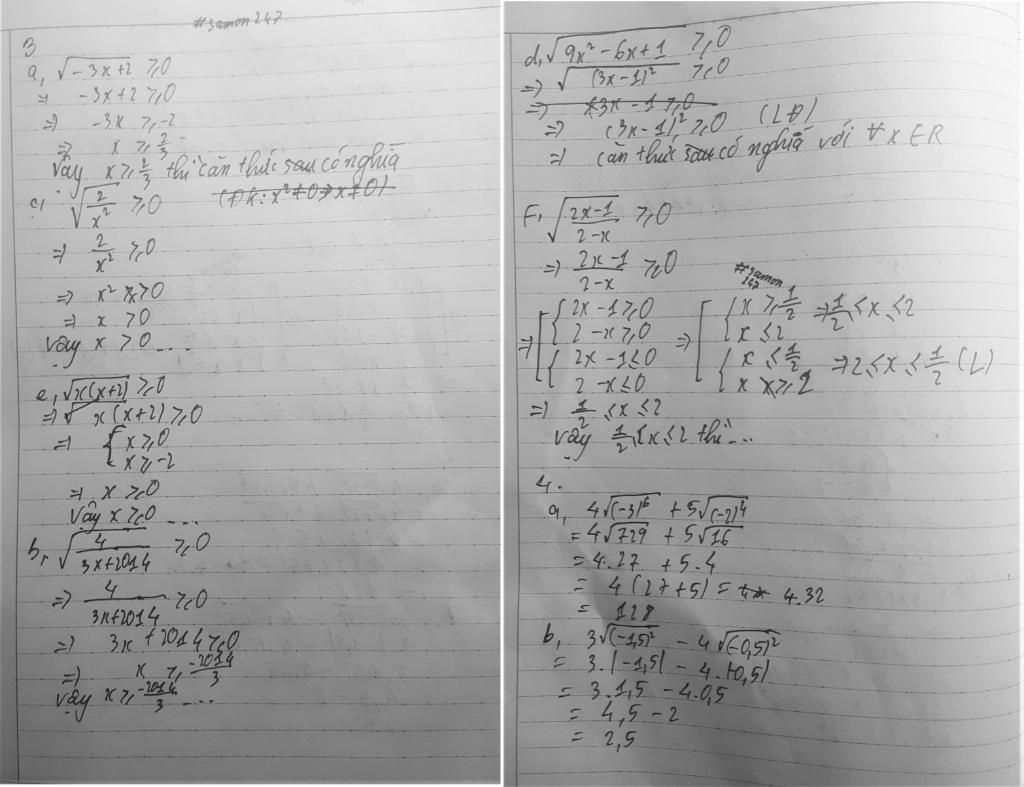 #samon247
3
a, √(-3x+2) ≥ 0
=> -3x+2 ≥ 0
=> -3x ≥ -2
=> x ≥ 2/3
Vậy x ≥ 2/3 thì căn thức sau có nghĩa
c, √(2/x²) ≥ 0 (đk: x² ≠ 0 => x ≠ 0)
=> 2/x² ≥ 0
=> x² > 0
=> x > 0
vậy x > 0 ....
e, √(x(x+2)) ≥ 0
=> x(x+2) ≥ 0
=> { x ≥ 0
x ≥ -2
=> x ≥ 0
Vậy x ≥ 0 ....
b, √(4/(3x+2014)) ≥ 0
=> 4/(3x+2014) ≥ 0
=> 3x+2014 ≥ 0
=> x ≥ -2014/3
Vậy x ≥ -2014/3 ....
d, √(9x²-6x+1) ≥ 0
=> √((3x-1)²) ≥ 0
=> 3x-1 ≥ 0
=> (3x-1)² ≥ 0 (LĐ)
=> căn thức sau có nghĩa với ∀x ∈ R
F, √((2x-1)/(2-x)) ≥ 0
=> (2x-1)/(2-x) ≥ 0
#samon
247
=> [ { 2x-1 ≥ 0 => [ { x ≥ 1/2 => 1/2 ≤ x ≤ 2
2-x ≥ 0 x ≤ 2
{ 2x-1 ≤ 0 { x ≤ 1/2 => 2 ≤ x ≤ 1/2 (L)
2-x ≤ 0 x ≥ 2
=> 1/2 ≤ x ≤ 2
vậy 1/2 ≤ x ≤ 2 thì ...
4.
a, 4√((-3)⁶) + 5√((-2)⁴)
= 4√729 + 5√16
= 4.27 + 5.4
= 4(27+5) = 4.32
= 128
b, 3√((-1,5)²) - 4√((-0,5)²)
= 3.|-1,5| - 4.|-0,5|
= 3.1,5 - 4.0,5
= 4,5 - 2
= 2,5